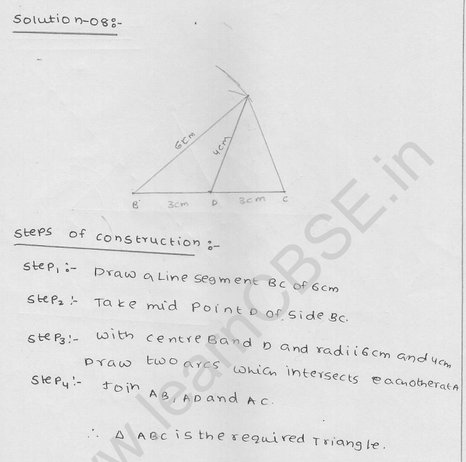 Solution-08:-
6cm
4cm
B
3cm
D
3cm
C
Steps of construction :-
Step1 :- Draw a Line segment BC of 6cm
Step2 :- Take mid point D of side BC.
Step3 :- with centre B and D and radii 6cm and 4cm
Draw two arcs which intersects each other at A
Step4 :- Join AB, AD and AC.
∴ Δ ABC is the required Triangle.
www.learnCBSE.in